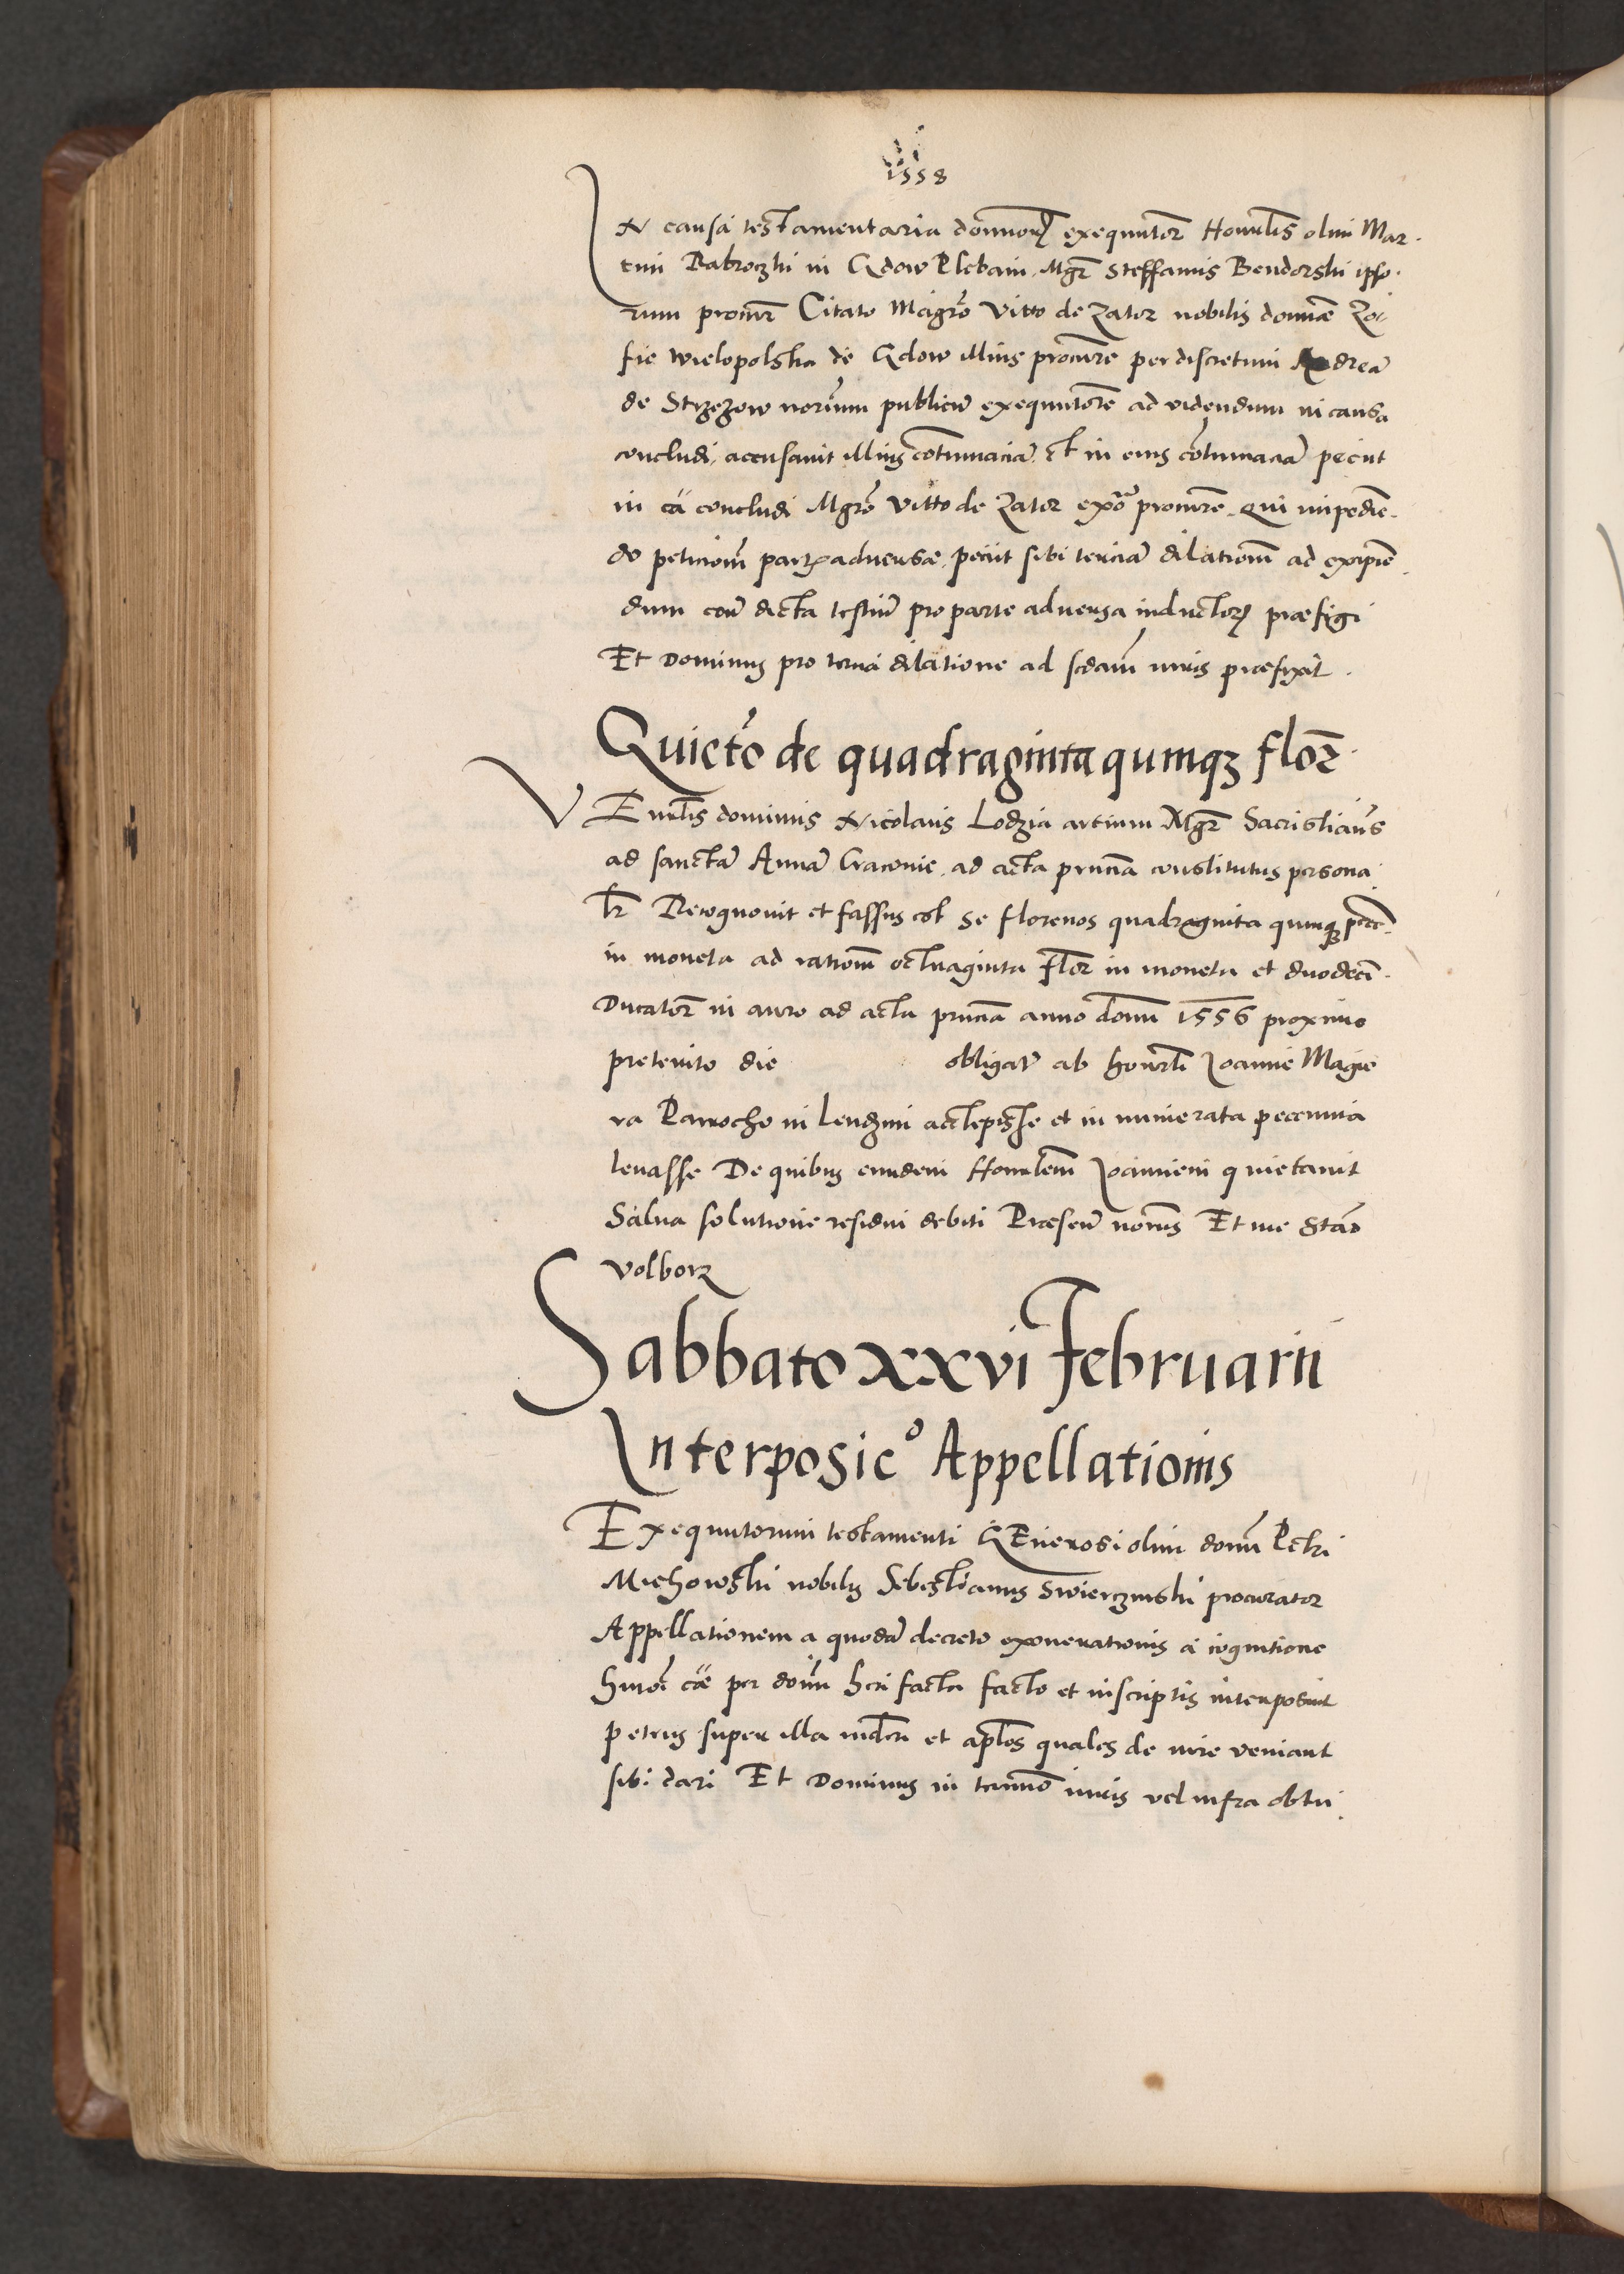 1558
IN causa testamentaria dominorꝝ exequutor̄ Honrlis olim Mar
tini Rabroczki in Gdow Plebani Mgr̄ Steffanus Bendorski ipso
rum procur̄ Citato Magrō Vitto de Zator nobilis domnæ Zo
fie Wielopolska de Gdow illius procurē per discretum Andreā
de Strzezow notr̄ium publicū exequutorē ad videndum in causa
concludi accusavit illius cōtumaciā Et in eius cōtumaciā peciit
in cā concludi Mgrō Vitto de Zator exō procurē Qui impedie
do peticionē partꝫ adversæ peciit sibi terciā dilationē ad excipiē
dum cont̄ dicta testiū pro parte adversa inductorꝝ præfigi
Et Dominus pro tercia dilatione ad scdam̄ iuris præfixit
Quietō de quadraginta quinqꝫ flor̄
VEnrlis dominus Nicolaus Lodzia artium Mgr̄ Sacristianus
ad sanctā Annā Cracovie ad acta prn̄cia constitutus persona
lr̄ Recognovit et fassus est se florenos quadraginta quinqꝫ pecc̄
in moneta ad rationē octuaginta flor̄ in moneta et duodeci
Ducator̄ in auro ad acta prn̄cia anno domī 1556 proximo
preterito die obligat̄ ab honrli Joanne Magie
ra Parrocho in Lendzini accepisse et in numerata peccunia
levasse De quibus eundem Honrlem Joannem quietavit
Salva solutione residui debiti Præsen̄ noriis Et me Stāo
Volborz
Sabbato xxvi Februarii
Interposicᵒ Appellationis
Exequutorum testamenti GEnerosi olim domī Petri
Miechowski nobilis Sebestianus Swierczinski procurator
Appellationem a quodā decreto exonerationis a cognitione
hmōi cæ per domī heri facta facto et inscriptis interposuit
petens super illa nideri et aplōs quales de iure veniant
sibi dari Et Dominus in termō iuris vel infra obtu